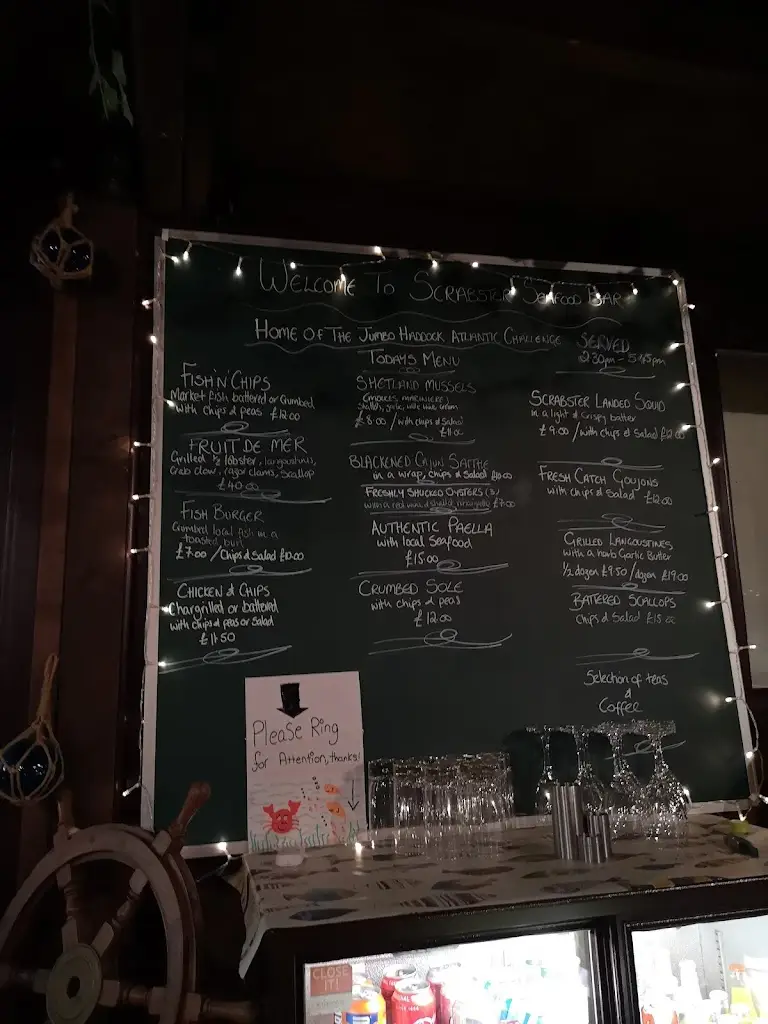 Welcome To Scrabster Seafood Bar
Home Of The Jumbo Haddock Atlantic Challenge
Served
2:30pm - 5:45pm
Todays Menu
Fish 'n' Chips
Market fish battered or Crumbed
with chips & peas £12.00
Fruit De Mer
Grilled ½ lobster, langoustines,
Crab claw, razor clams, Scallop
£40.00
Fish Burger
Crumbed local fish in a
toasted bun
£7.00 / Chips & Salad £10.00
Chicken & Chips
Chargrilled or battered
with chips & peas or Salad
£11.50
Shetland Mussels
(moules marinière)
Shallots, garlic, white wine, cream
£8.00 / with chips & Salad
£11.00
Blackened Cajun Saithe
in a wrap, chips & Salad £10.00
Freshly Shucked Oysters (3)
with a red wine & shallot vinaigrette £7.00
Authentic Paella
with local Seafood
£15.00
Crumbed Sole
with chips & peas
£12.00
Scrabster Landed Squid
in a light & Crispy batter
£9.00 / with chips & Salad £12.00
Fresh Catch Goujons
with chips & Salad £12.00
Grilled Langoustines
with a herb Garlic Butter
½ dozen £9.50 / dozen £19.00
Battered Scallops
Chips & Salad £15.00
Selection of teas
&
Coffee
Please Ring
for Attention, thanks!
CLOSE
IT!